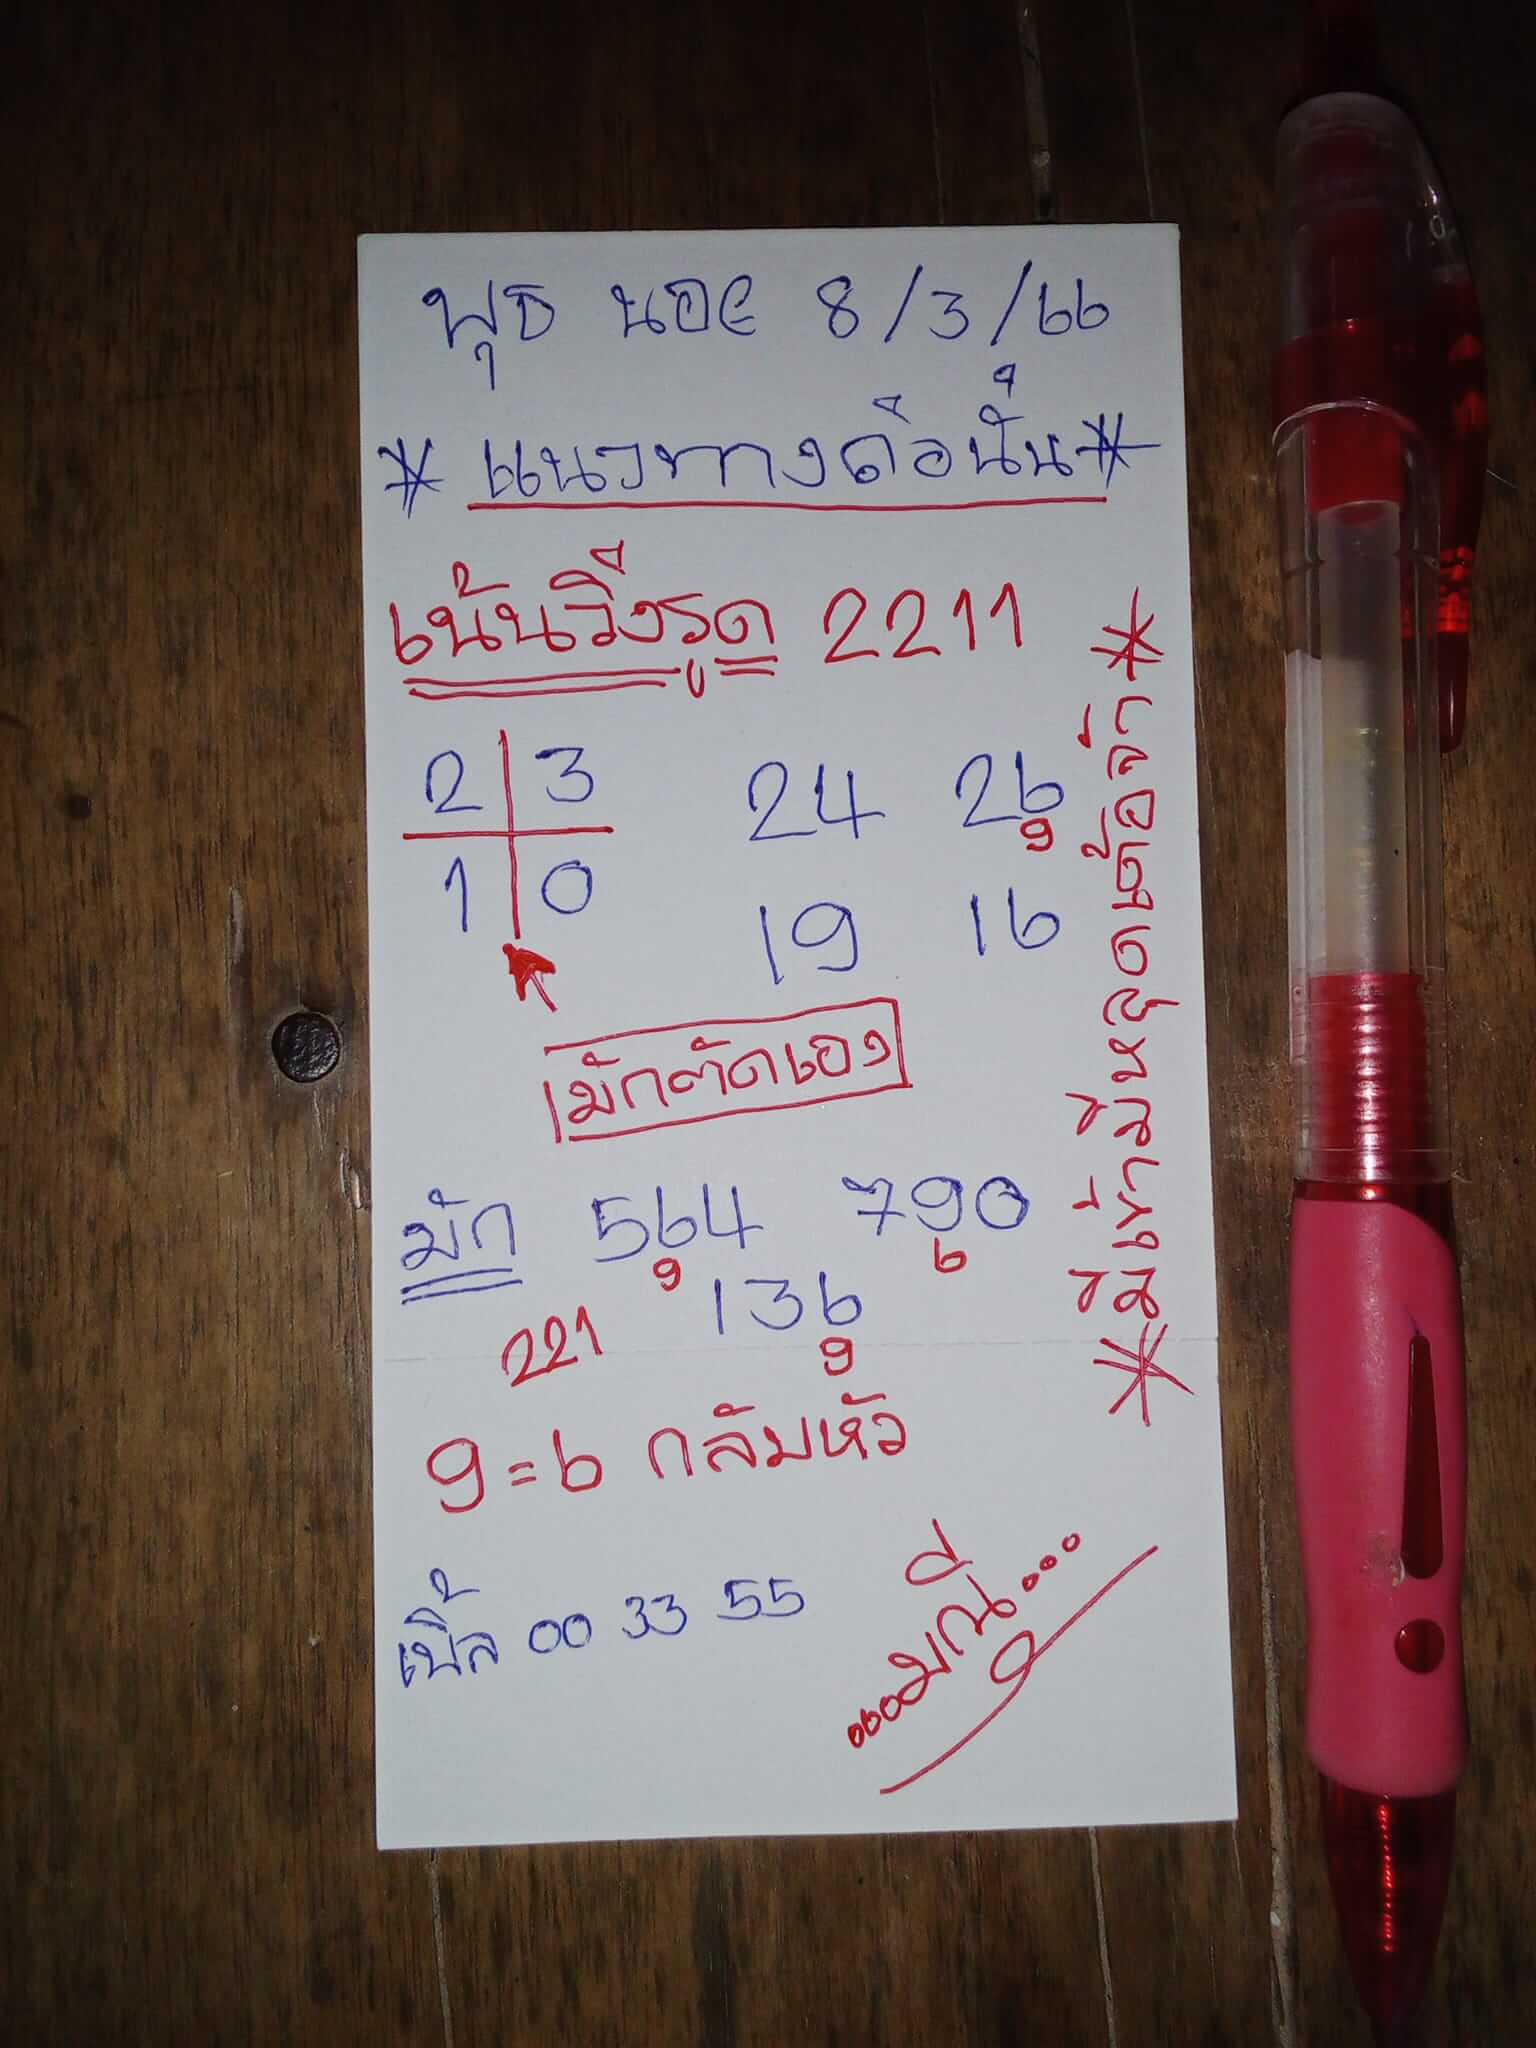 พุธ นอย 8/3/66
* แนวทางดือนั้น *
เน้นวิ่งรูด 2211
2 3 24 26
9
1 0 19 16
มักตัดเอง
มัก 564 790
9 6
221 136
9
9=6 กลับหัว
เบิ้ล 00 33 55
...มณี...
*มีเข้ามีหลุดเด้อจ้า*